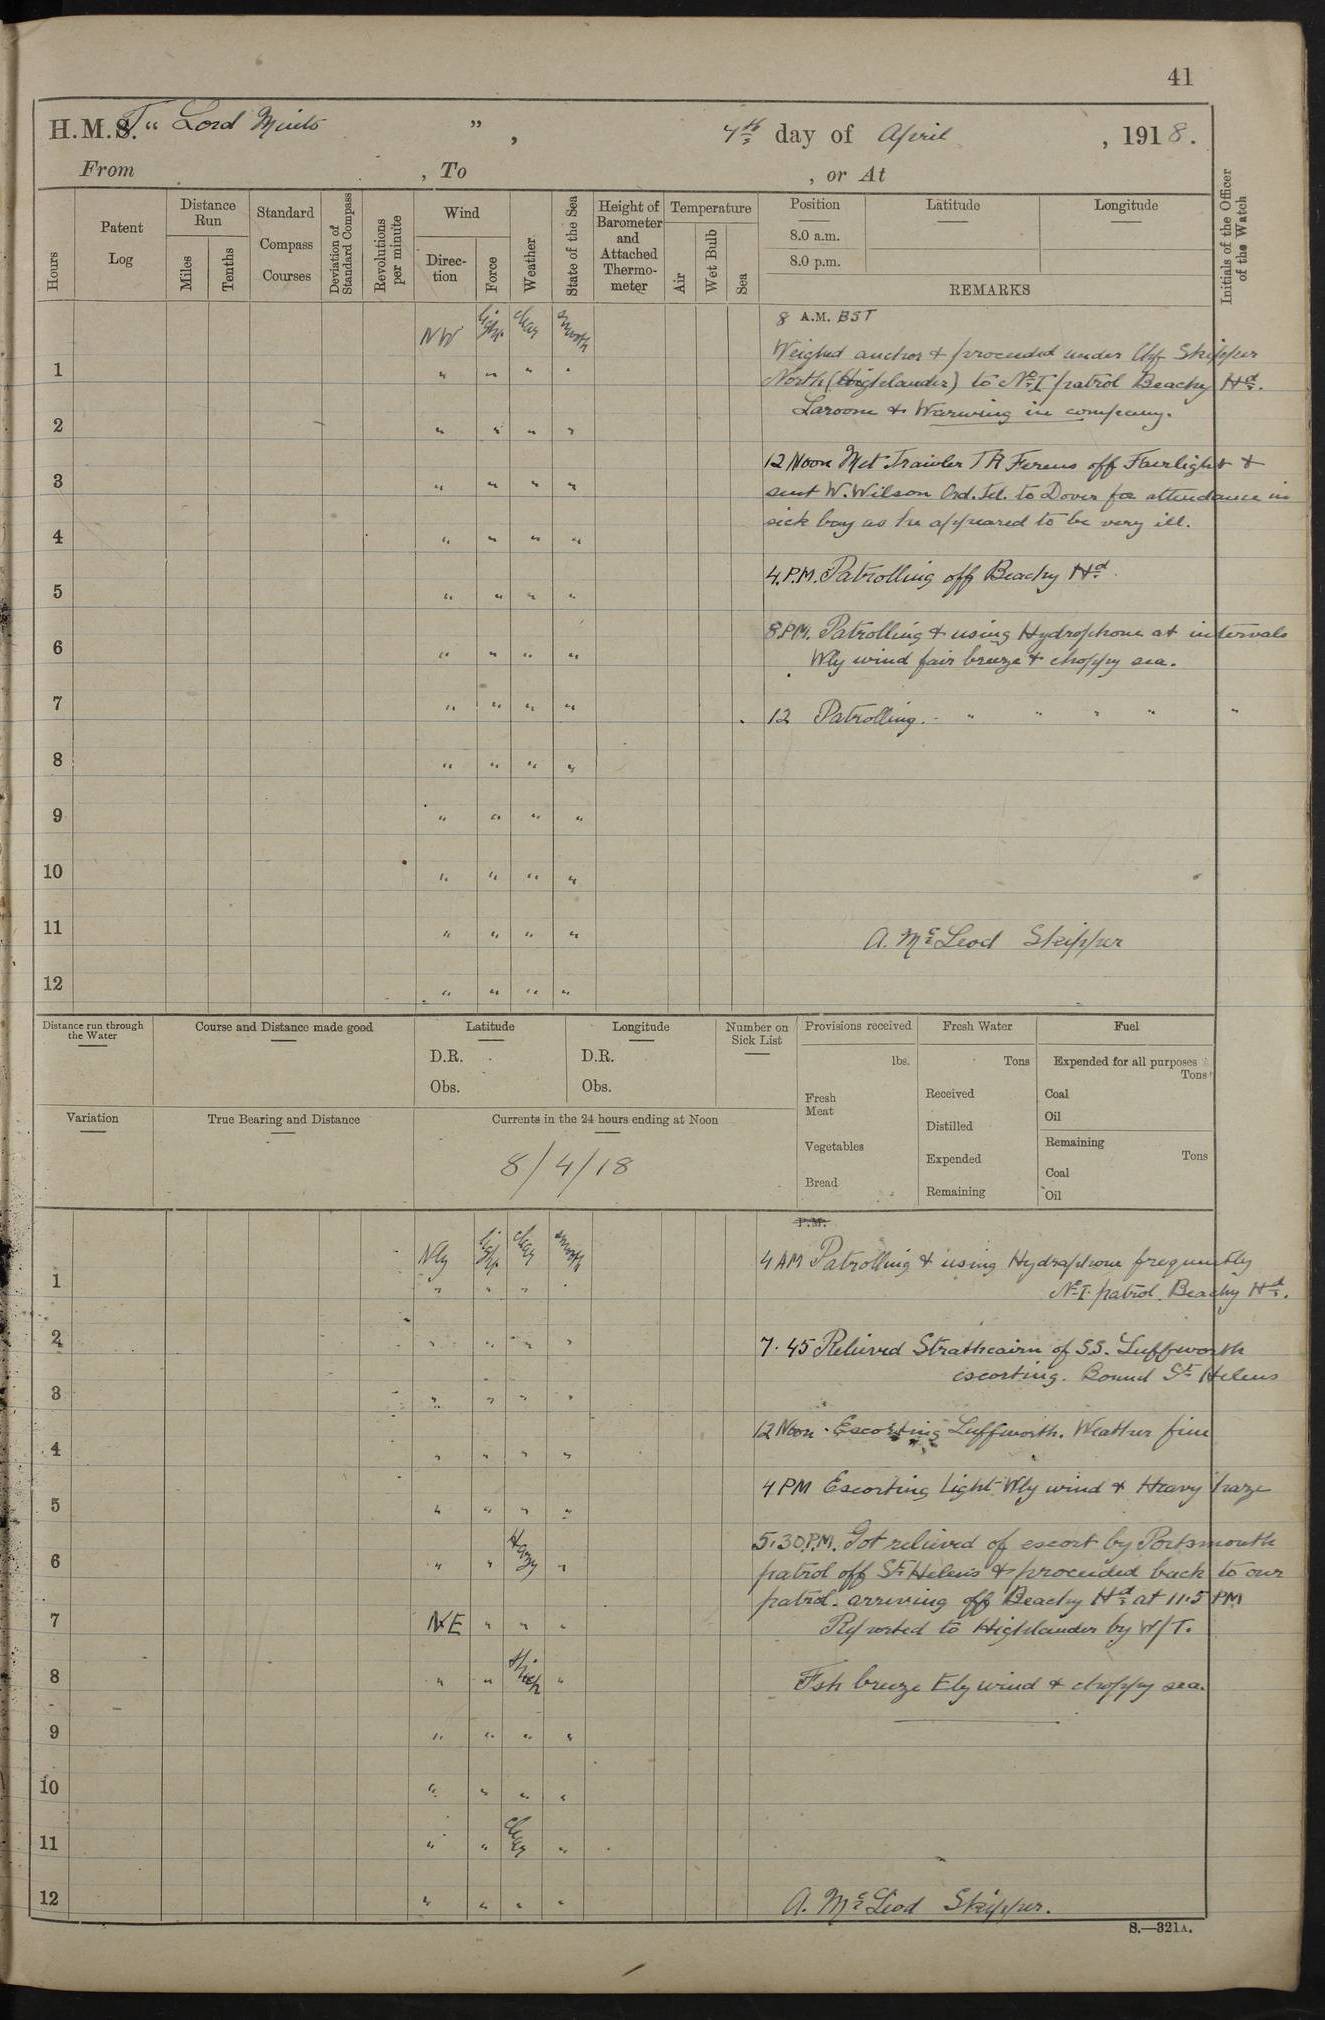 41
H.M.S.T. " Lord Minto ", 7th day of April, 1918.
From , To , or At
Hours
Patent Log
Distance Run
Miles
Tenths
Standard Compass Courses
Deviation of Standard Compass
Revolutions per minute
Wind
Direction
Force
Weather
State of the Sea
Height of Barometer and Attached Thermometer
Temperature
Air
Wet Bulb
Sea
Position
8.0 a.m.
8.0 p.m.
Latitude
Longitude
REMARKS
Initials of the Officer of the Watch
NW light clear smooth
8 A.M. BST
Weighed anchor & proceeded under Chf Skipper
1 " " " "
North (Highlander) to No. I patrol Beachy Hd.
Laroone & Warwing in company.
2 " " " "
12 Noon Met Trawler T R Ferens off Fairlight &
3 " " " "
sent W. Wilson Ord. Tel. to Dover for attendance in
sick bay as he appeared to be very ill.
4 " " " "
4.P.M. Patrolling off Beachy Hd.
5 " " " "
8.P.M. Patrolling & using Hydrophone at intervals
6 " " " "
Wly wind fair breeze & choppy sea.
7 " " " "
12 Patrolling. " " " " "
8 " " " "
9 " " " "
10 " " " "
11 " " " "
A. McLeod Skipper
12 " " " "
Distance run through the Water
Course and Distance made good
Latitude
D.R.
Obs.
Longitude
D.R.
Obs.
Number on Sick List
Provisions received
lbs.
Fresh Meat
Vegetables
Bread
Fresh Water
Tons
Received
Distilled
Expended
Remaining
Fuel
Expended for all purposes
Tons
Coal
Oil
Remaining
Tons
Coal
Oil
Variation
True Bearing and Distance
Currents in the 24 hours ending at Noon
8/4/18
P.M.
Nly light clear smooth
4 AM Patrolling & using Hydrophone frequently
1 " " " "
No. I. patrol. Beachy Hd.
2 " " " "
7.45 Relieved Strathcairn of S.S. Luffworth
escorting. Bound St Helens
3 " " " "
12 Noon. Escorting Luffworth. Weather fine
4 " " " "
4 PM Escorting Light Wly wind & Heavy haze
5 " " " "
5.30.P.M. Got relieved of escort by Portsmouth
6 " " Hazy "
patrol off St Helens & proceeded back to our
patrol. arriving off Beachy Hd. at 11.5 PM
7 NE " " "
Reported to Highlander by W/T.
8 " " thick "
Fsh breeze Ely wind & choppy sea.
9 " " " "
10 " " " "
11 " " clear "
12 " " " "
A. McLeod Skipper.
S.—321A.